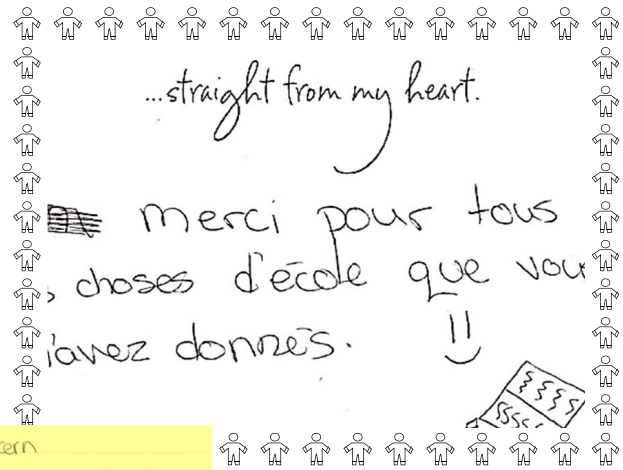 ...straight from my heart.
merci pour tous
choses d'école que vous
m'avez donnés.